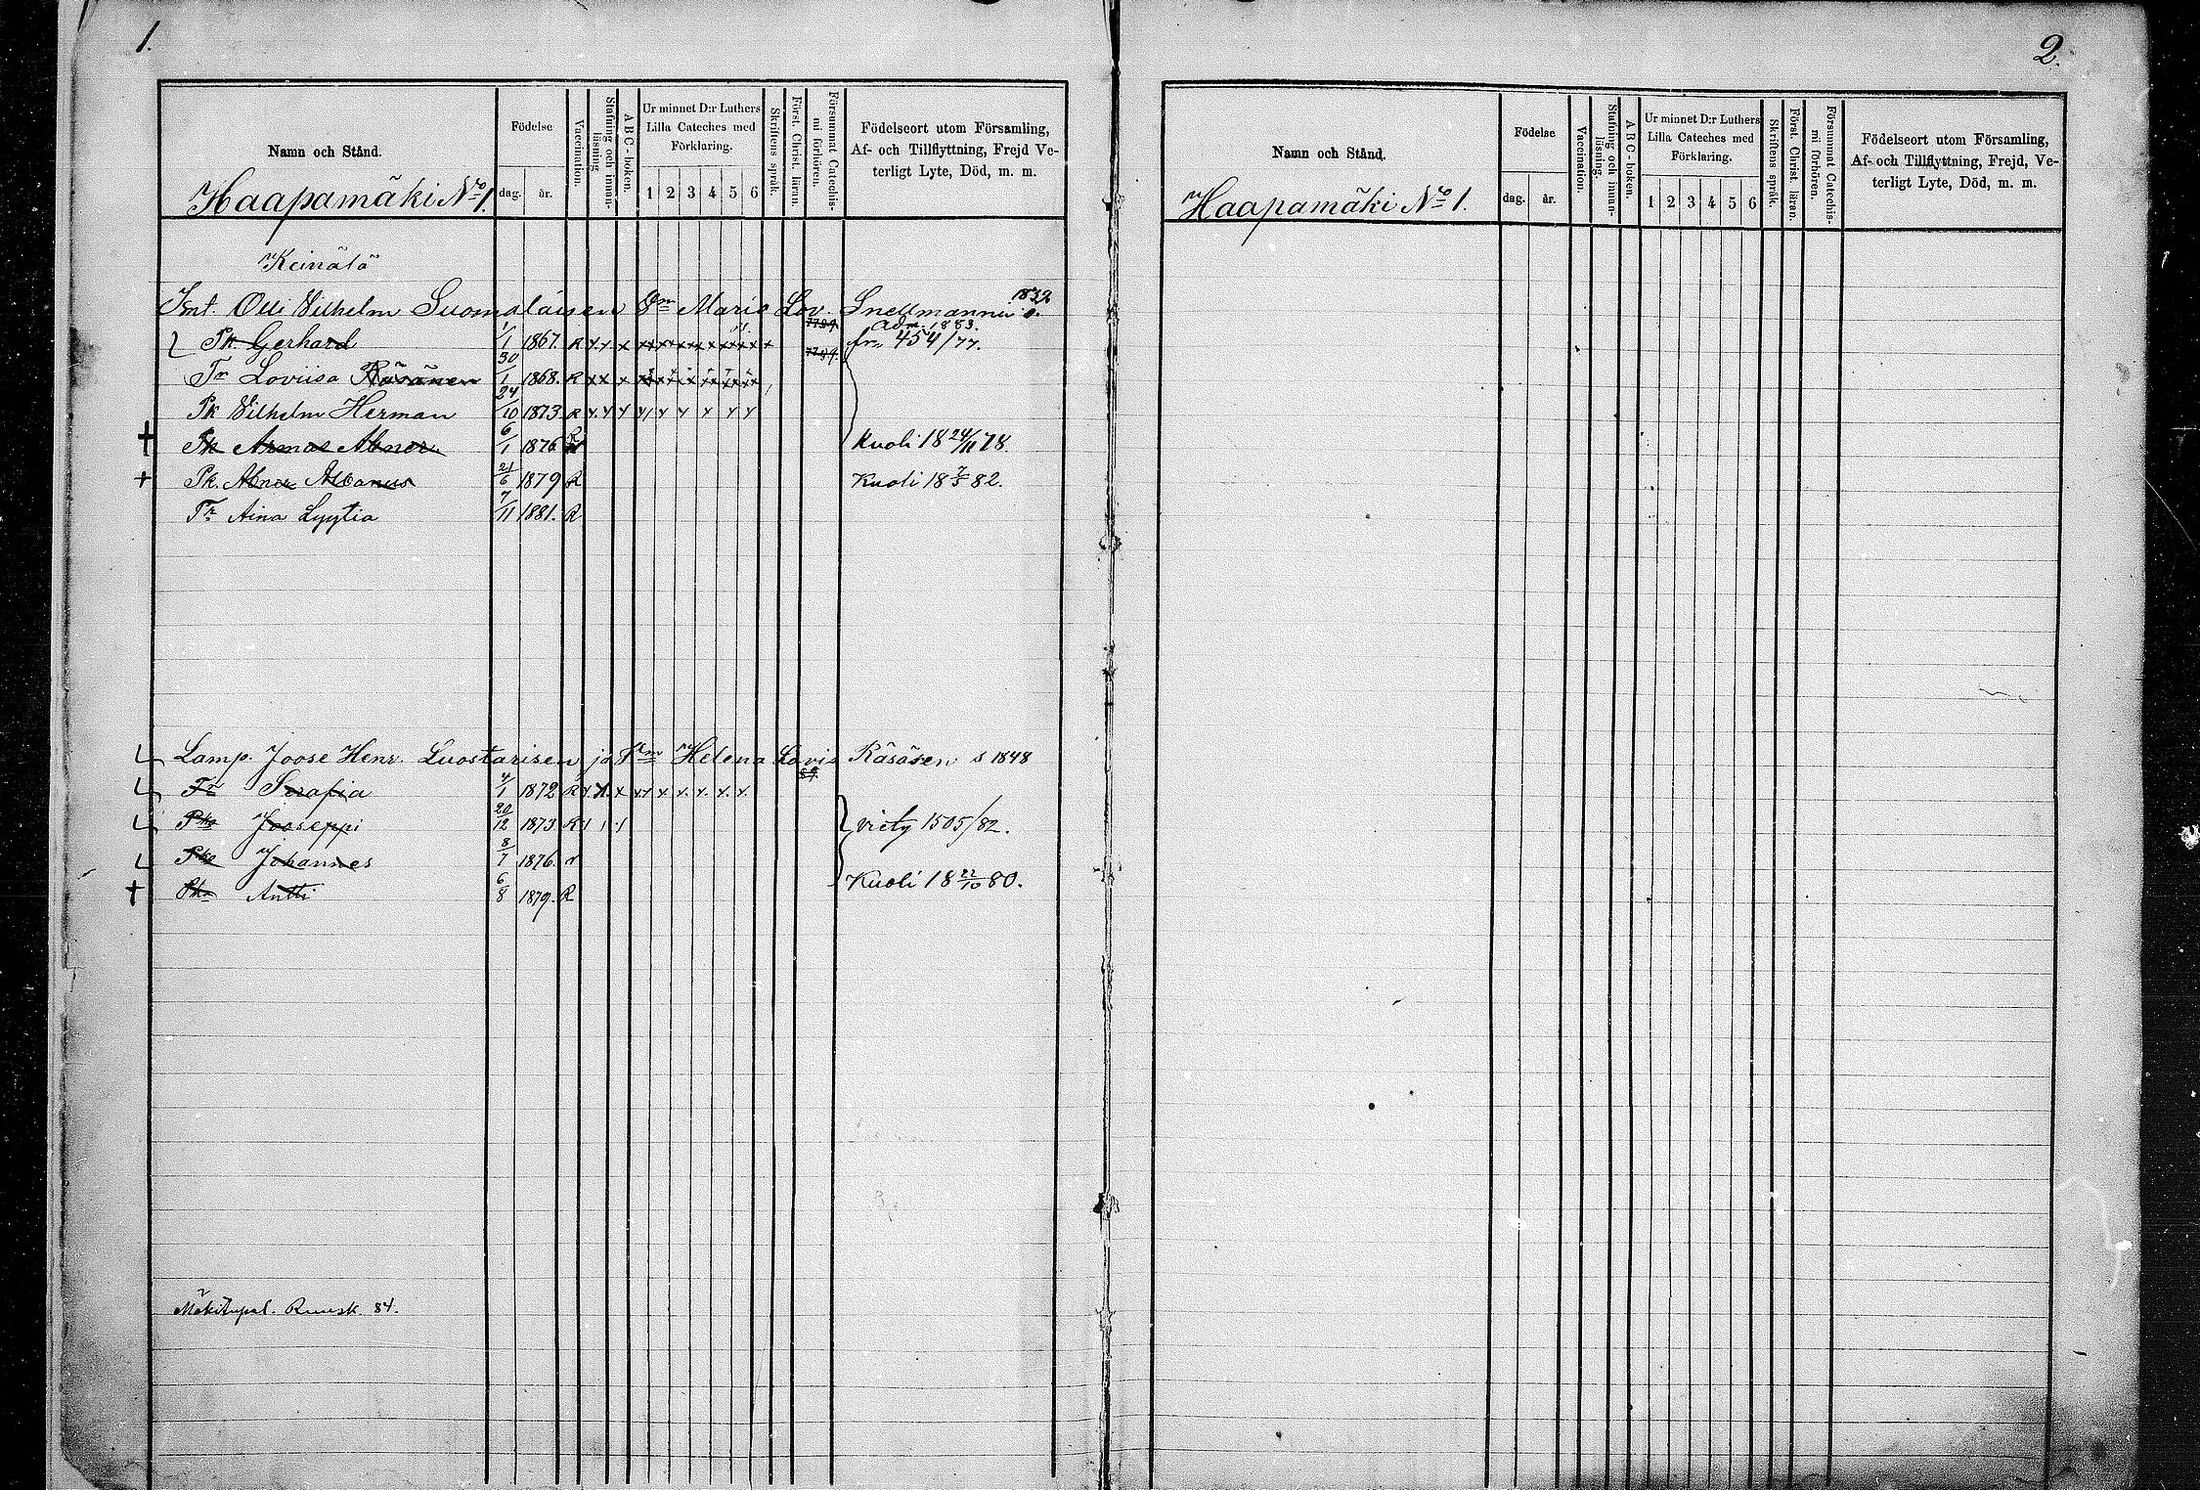 1.
Namn och Stånd.
Födelse
dag.
år.
Vaccination.
Stafning och innan-läsning.
A B C-boken.
Ur minnet D:r Luthers Lilla Cateches med Förklaring.
1 2 3 4 5 6
Skriftens språk.
Först. Christ. läran.
Försummat Catechis-mi förhören.
Födelseort utom Församling,
Af- och Tillflyttning, Frejd Ve-
terligt Lyte, Död, m. m.
Haapamäki No 1.
Keinälä
Olli Vilhelm Suomalaisen Vm Maria Lov. Snellmannin s. 1832
Adm. 1883.
Pk Gerhard 1/1 1867. R fr. 454/77.
Tr Loviisa Räsänen 30/1 1868. R
Pk Vilhelm Herman 24/10 1873 R
Pk Armas Abnor 6/1 1876 R Kuoli 18 24/11 78.
Pk. Abnor Albanus 21/6 1879 R Kuoli 18 7/5 82.
Tr Aina Lyytia 7/11 1881. R
Lamp. Joose Henr. Luostarisen ja Vm Helena Lovis Räsäsen s 1848
Tr Serafia 4/1 1872 R
Pka Jooseppi 20/12 1873 R viety 1505/82.
Pka Johannes 8/7 1876. r
Pka Antti 6/8 1879. R Kuoli 18 22/10 80.
Mäkitupal. Ruusk. 84.
2.
Namn och Stånd.
Födelse
dag.
år.
Vaccination.
Stafning och innan-läsning.
A B C-boken.
Ur minnet D:r Luthers Lilla Cateches med Förklaring.
1 2 3 4 5 6
Skriftens språk.
Först. Christ. läran.
Försummat Catechis-mi förhören.
Födelseort utom Församling,
Af- och Tillflyttning, Frejd, Ve-
terligt Lyte, Död, m. m.
Haapamäki No 1.